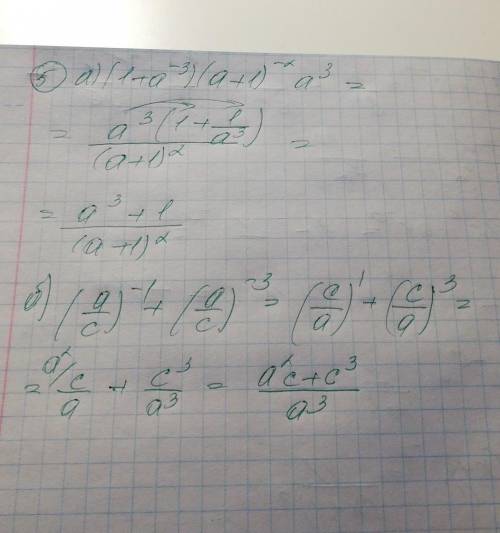 5) а) (1+a⁻³)(a+1)⁻² a³ =
= a³(1+1/a³)/(a+1)² =
= (a³+1)/(a+1)²
б) (a/c)⁻¹ + (a/c)⁻³ = (c/a)¹ + (c/a)³ =
= a²/ c/a + c³/a³ = (a²c+c³)/a³